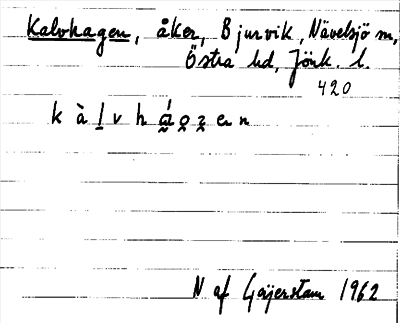 Kalvhagen, åker, Bjurvik, Nävelsjö sn,
Östra hd, Jönk. l.
420
k à l v h
N af Geijerstam 1962